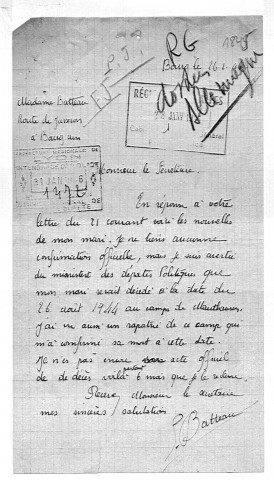 RG
P.J?
FJ
1849
Bourg le 26.1.
dossier
Allemagne
Madame Batteau
Route de
à Bourg ain
RÉG
31 JANV 6
1472
Monsieur le Secrétaire
En reponse à votre
lettre du 21 courant voici les nouvelles
de mon mari. Je ne tiens aucune
confirmation officielle, mais je suis avertie
du ministère des deportes Politiques que
mon mari serait décédé à la date du
26 août 1944 au camps de Mauthausen.
J'ai vu aussi un rapatrié de ce camp qui
m'a comfirmé sa mort à cette date.
Je n'ai pas encore acte officiel
de décès voilà pourtant 6 mois que je le
Recevez Monsieur le secrétaire
mes sincères salutations
Batteau